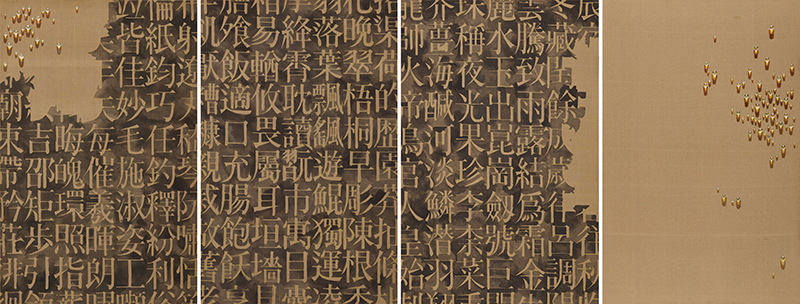 辰往秋
冬藏閏餘成歲律呂調陽
雲騰致雨露結爲霜金生
麗水玉出崑岡劍號巨闕
珠稱夜光果珍李柰菜重
芥薑海鹹河淡鱗潛羽翔
龍師火帝鳥官人皇始
渠荷的歷園莽抽條
晚翠梧桐早彫陳根委
翳落葉飄颻遊鵾獨運凌
摩絳霄耽讀翫市寓目囊
易輶攸畏屬耳垣墻具
膳飡飯適口充腸飽飫烹
飢厭糟糠親戚故舊
射遼丸嵇琴阮嘯恬
倫紙鈞巧任釣釋紛利俗
並皆佳妙毛施淑姿工顰
年矢每催羲暉朗曜
晦魄環照指薪
吉邵矩步引領
朝束帶矜莊徘